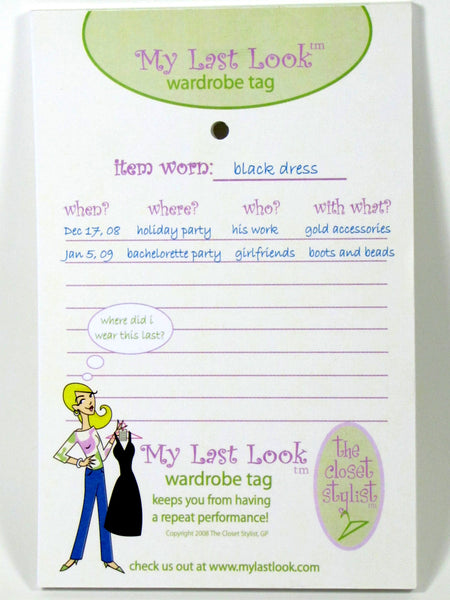 My Last Look™
wardrobe tag
item worn: black dress
when? where? who? with what?
Dec 17, 08 holiday party his work gold accessories
Jan 5, 09 bachelorette party girlfriends boots and beads
where did i
wear this last?
My Last Look™
wardrobe tag
keeps you from having
a repeat performance!
Copyright 2008 The Closet Stylist, GP
the
closet
stylist™
check us out at www.mylastlook.com